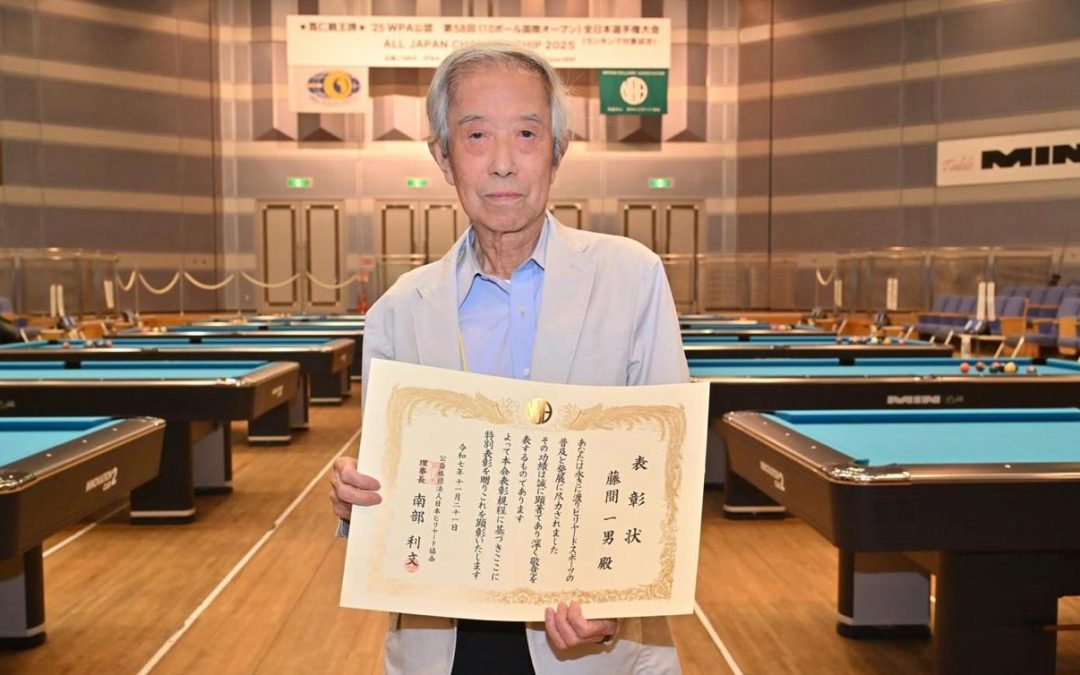 ★寬仁親王牌★ '25 WPA公認 第58回(10ボール国際オープン)全日本選手権大会
ALL JAPAN CHAMPIONSHIP 2025 (ランキング対象試合)
NIPPON BILLIARD ASSOCIATION
Table MIN
MIN
表彰状
藤間一男殿
あなたは永きに渡りビリヤードスポーツの
普及と発展に尽力されました
その功績は誠に顕著であり深く敬意を
表するものであります
よって本会表彰規程に基づきここに
特別表彰を贈りこれを顕彰いたします
令和七年十一月二十一日
公益社団法人日本ビリヤード協会
理事長 南部利文